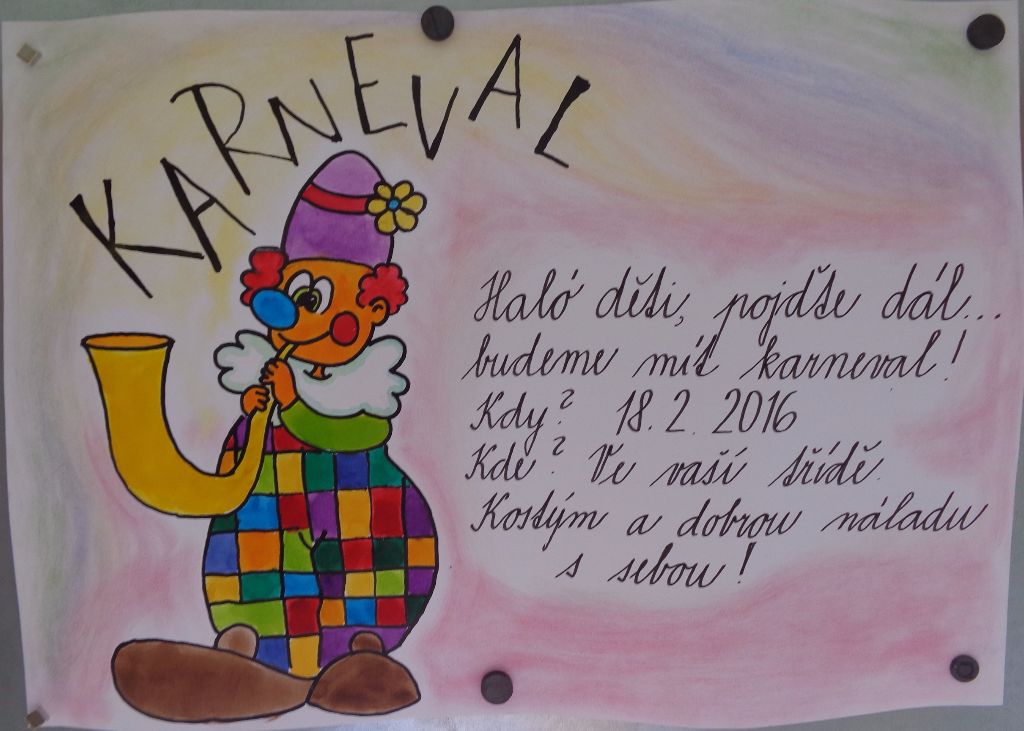 KARNEVAL
Haló děti, pojďte dál...
budeme mít karneval!
Kdy? 18. 2. 2016
Kde? Ve vaší třídě.
Kostým a dobrou náladu
s sebou!